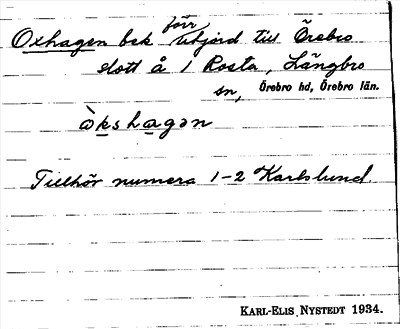 Oxhagen bek förr utjord till Örebro
slott å 1 Rosta, Längbro
sn, Örebro hd, Örebro län.
òkshagən
Tillhör numera 1-2 Karlslund.
KARL-ELIS NYSTEDT 1934.